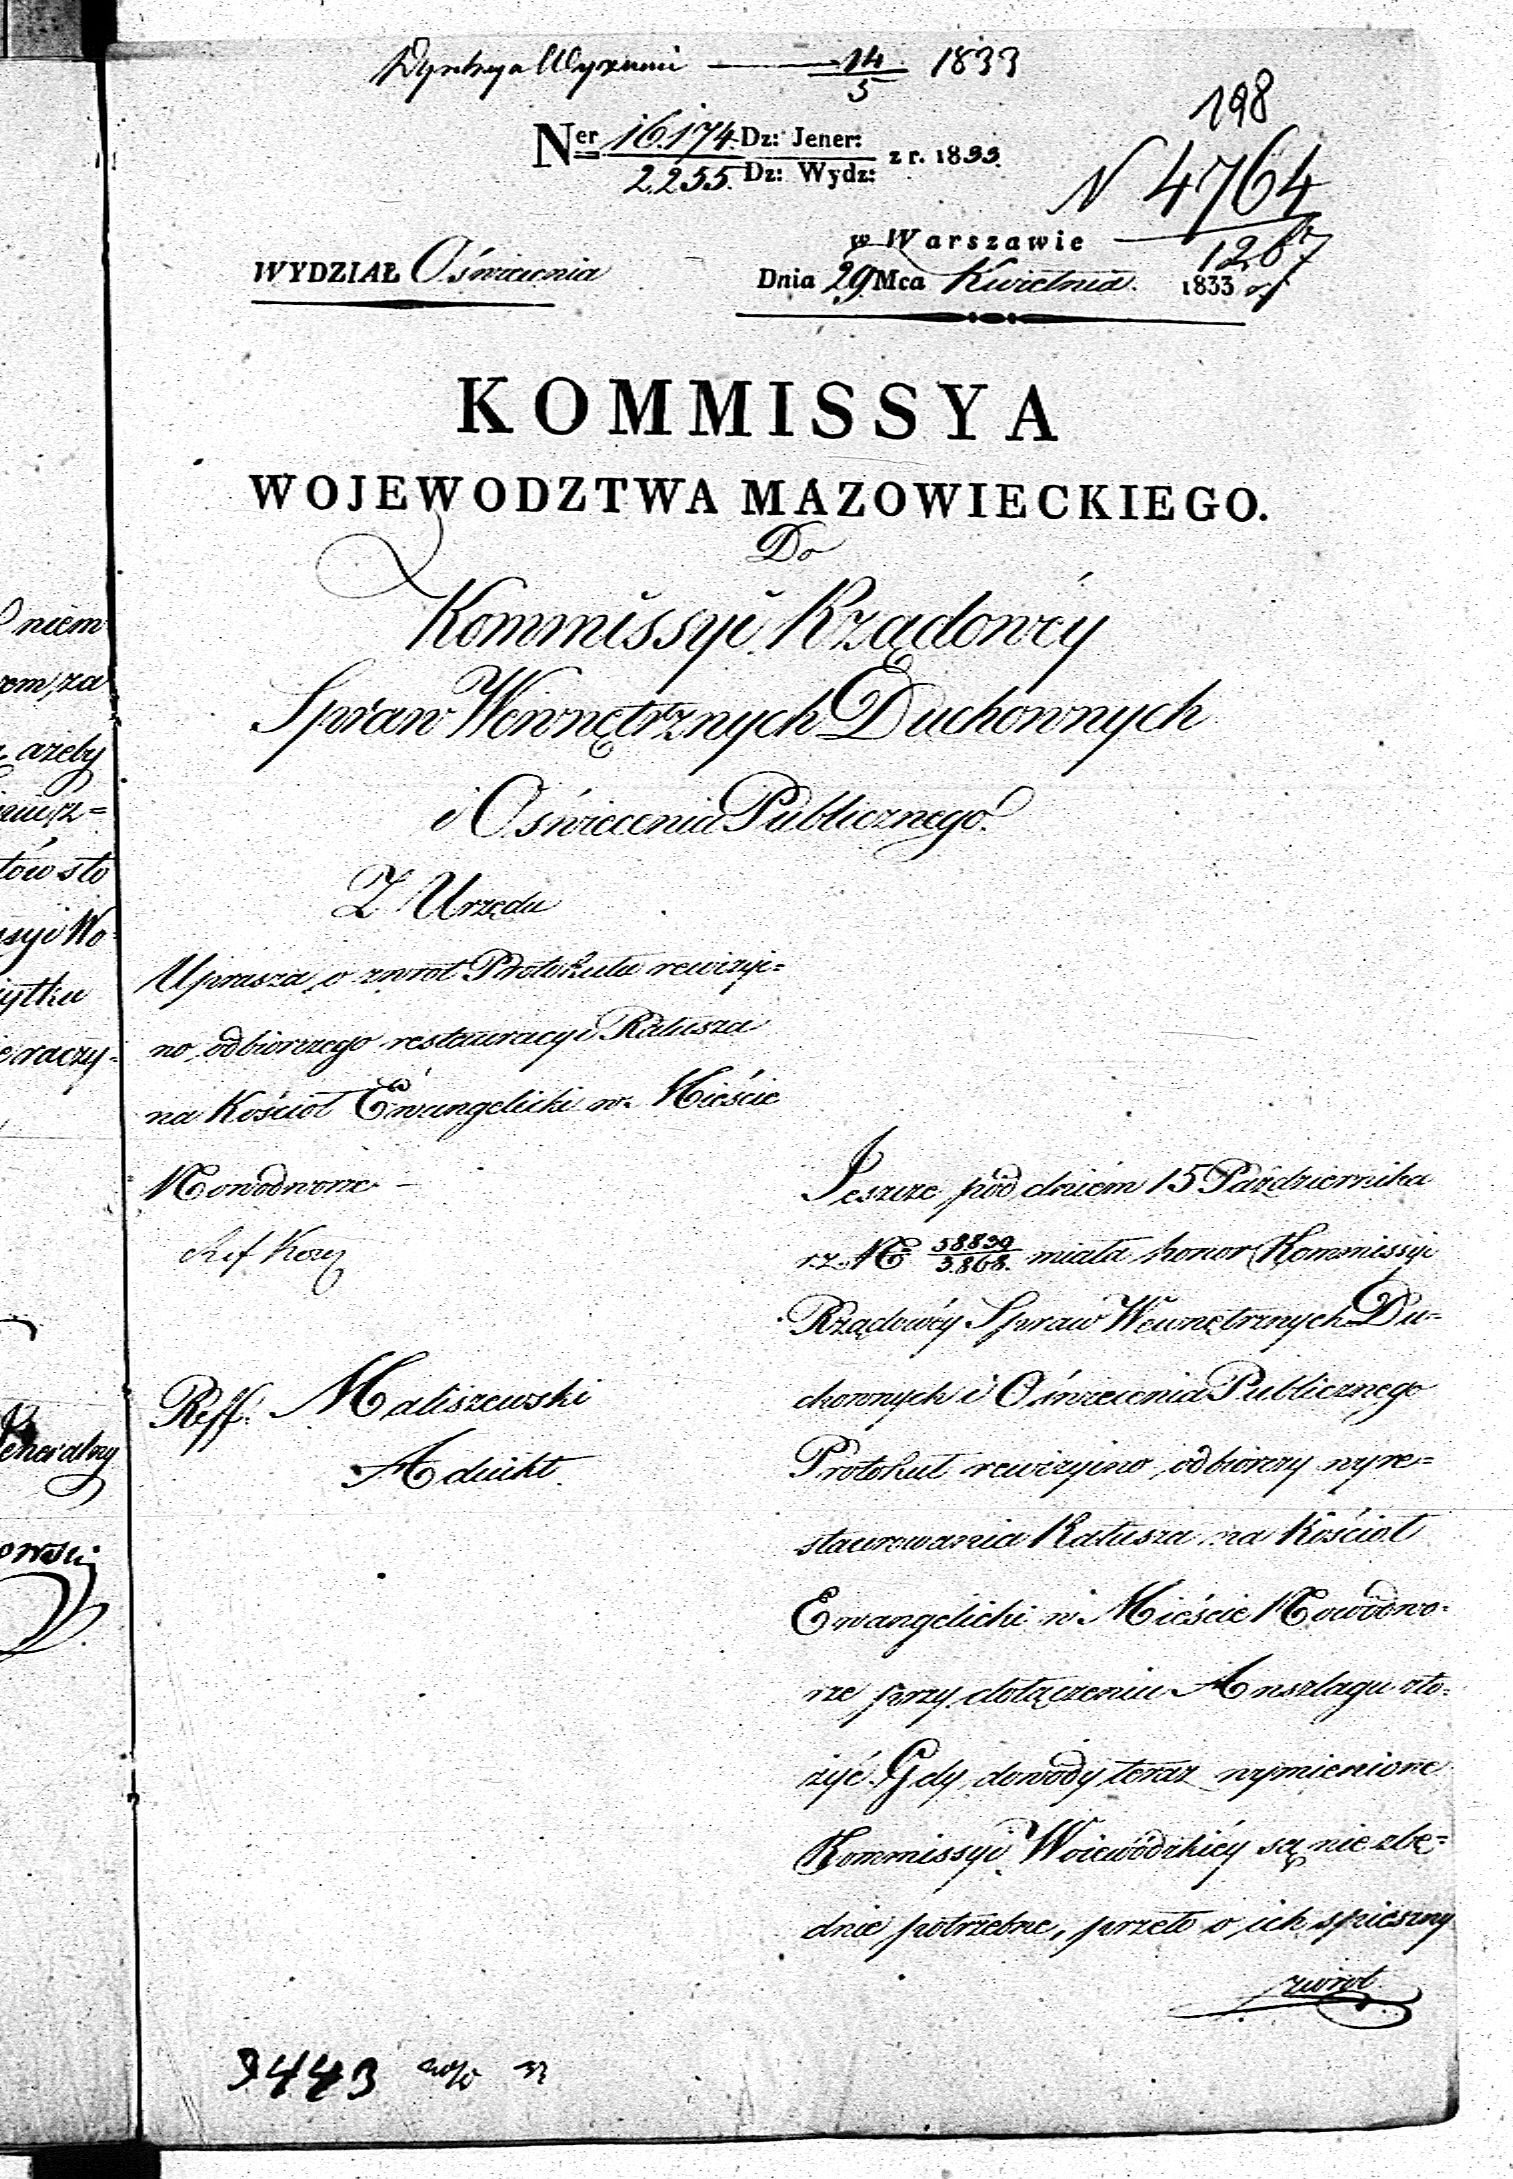 14/5 1833
198
Ner 16.174. Dz: Jener: z r. 1833.
2.255. Dz: Wydz:
N 4764
1267
w Warszawie
WYDZIAŁ Oświecenia
Dnia 29 Mca Kwietnia. 1833
KOMMISSYA
WOJEWODZTWA MAZOWIECKIEGO.
Do
Kommissyi Rządowéy
Spraw Wewnętrznych Duchownych
i Oświecenia Publicznego.
Z Urzędu
Uprasza o zwrot Protokułu rewizyi=
no, odbiorczego restauracyi Ratusza
na Kościoł Ewangelicki w Mieście
Nowodworze
Reff: Maliszewski
Adiukt.
Jeszcze pod dniem 15 Października
r.z. No 38839/3.808. miała honor Kommissyi
Rządowéy Spraw Wewnętrznych Du=
chownych i Oświecenia Publicznego
Protokuł rewizyino, odbiorczy wyre=
staurowania Ratusza na Kościoł
Ewangelicki w Mieście Nowodwo=
rze przy dołączeniu Anszlagu zło=
żyć. Gdy dowody teraz wymienione
Kommissyi Woiewódzkiéy są nie zbę=
dnie potrzebne, przeto o ich spieszny
zwrot
3443
niem
za
ażeby
tów sto
syi Wo=
żytku
raczy=
eneralny
owski